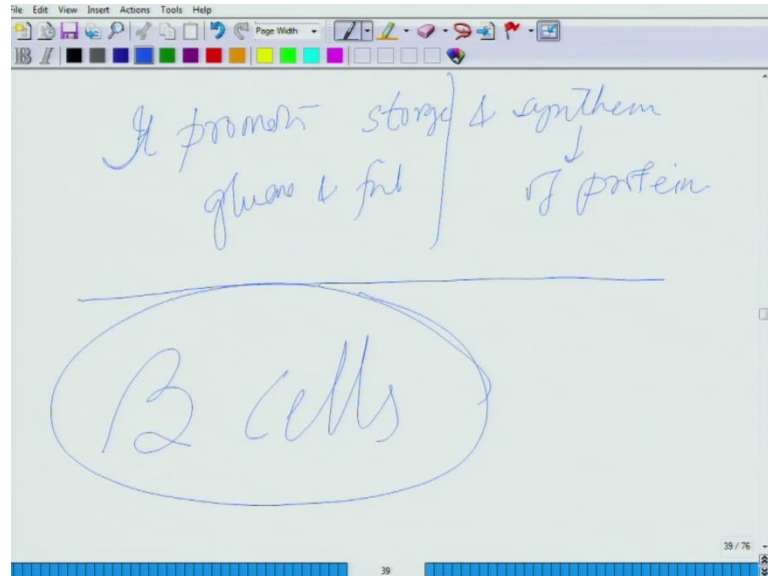 File Edit View Insert Actions Tools Help
Page Width
B I
It promotn storge & synthem
↓
glucos & fat of protein
B cells
39 / 76
39